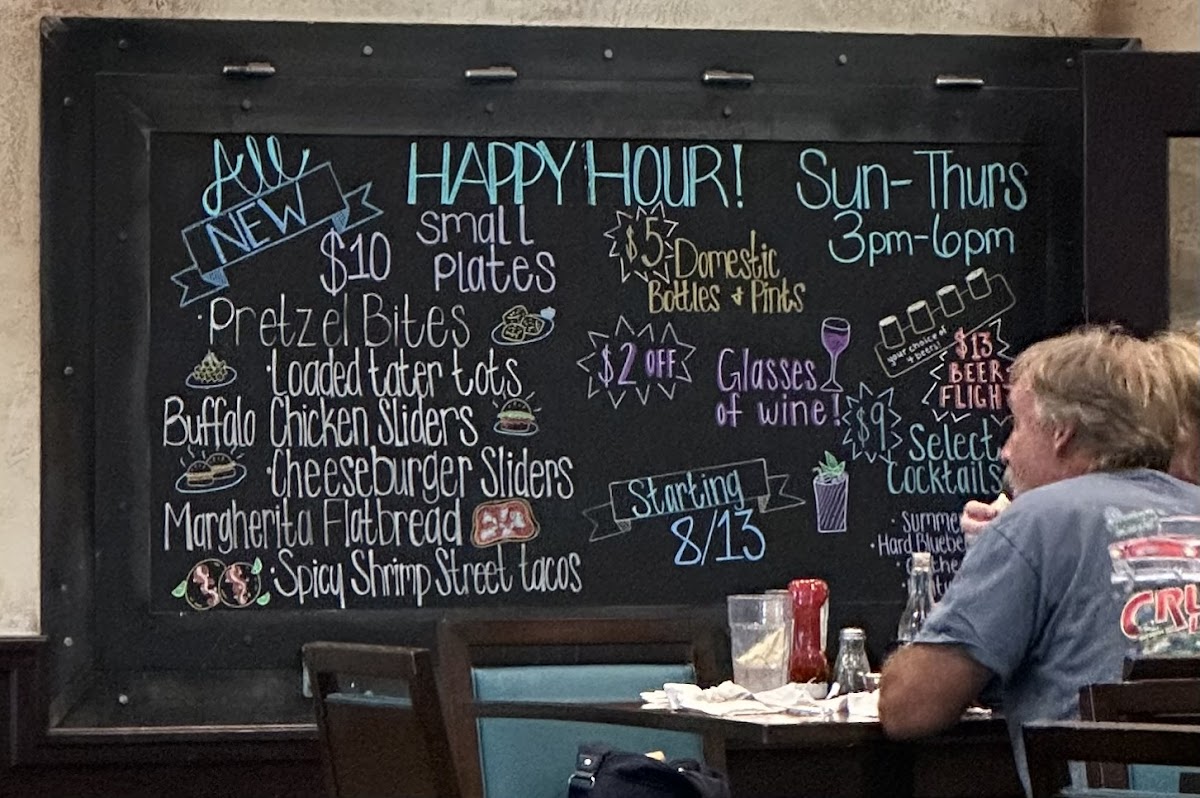 All
NEW
HAPPY HOUR!
Sun-Thurs
3pm-6pm
$10
small
plates
· Pretzel Bites
· Loaded tater tots
Buffalo Chicken Sliders
· Cheeseburger Sliders
Margherita Flatbread
· Spicy Shrimp Street tacos
$5
Domestic
Bottles & Pints
$2 OFF
Glasses
of wine!
Starting
8/13
your choice of
4 beers!
$13
BEER
$9
Select
Cocktails